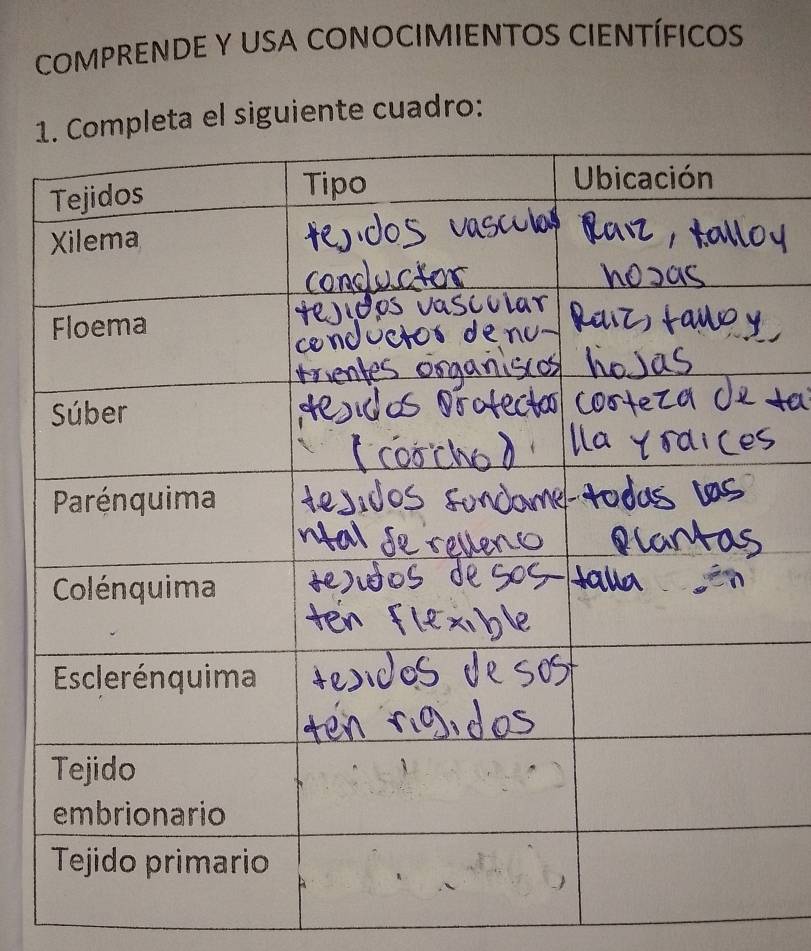 COMPRENDE Y USA CONOCIMIENTOS CIENTÍFICOS
1. Completa el siguiente cuadro:
Tejidos Tipo Ubicación
Xilema tejidos vascular Raiz, talloy
conductor hojas
Floema tejidos vascular Raiz, talloy
conductor denu-
trientes organiscos hojas
Súber tejidos Protector corteza de ta
(corcho) lla y raices
Parénquima tejidos fundame- todas las
ntal de relleno Plantas
Colénquima tejidos de sos- talla en
ten flexible
Esclerénquima tejidos de sos
ten rigidos
Tejido
embrionario
Tejido primario